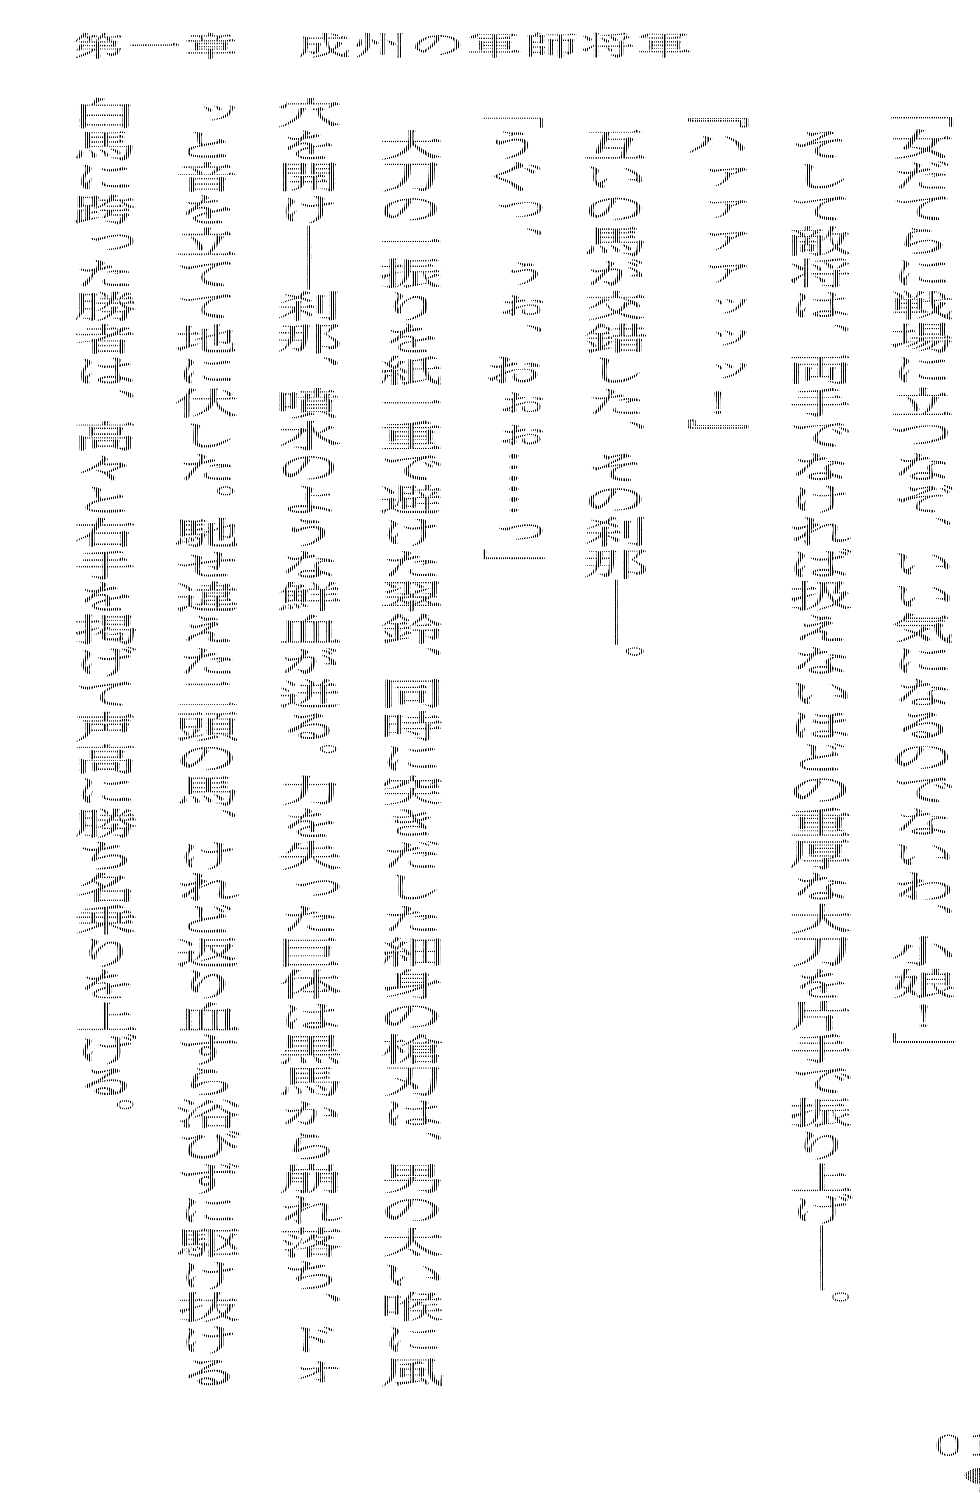 第一章　成州の軍師将軍
「女だてらに戦場に立つなぞ、いい気になるのでないわ、小娘！」
　そして敵将は、両手でなければ扱えないほどの重厚な大刀を片手で振り上げ――。
『ハァァァァッッッ！』
　互いの馬が交錯した、その刹那――。
「うぐっ、ぅぉ、おぉぉ……っ」
　大刀の一振りを紙一重で避けた翠鈴、同時に突きだした細身の槍刃は、男の太い喉に風
穴を開け――刹那、噴水のような鮮血が迸る。力を失った巨体は黒馬から崩れ落ち、ドォ
ッと音を立てて地に伏した。馳せ違えた二頭の馬、けれど返り血すら浴びずに駆け抜ける
白馬に跨った勝者は、高々と右手を掲げて声高に勝ち名乗りを上げる。